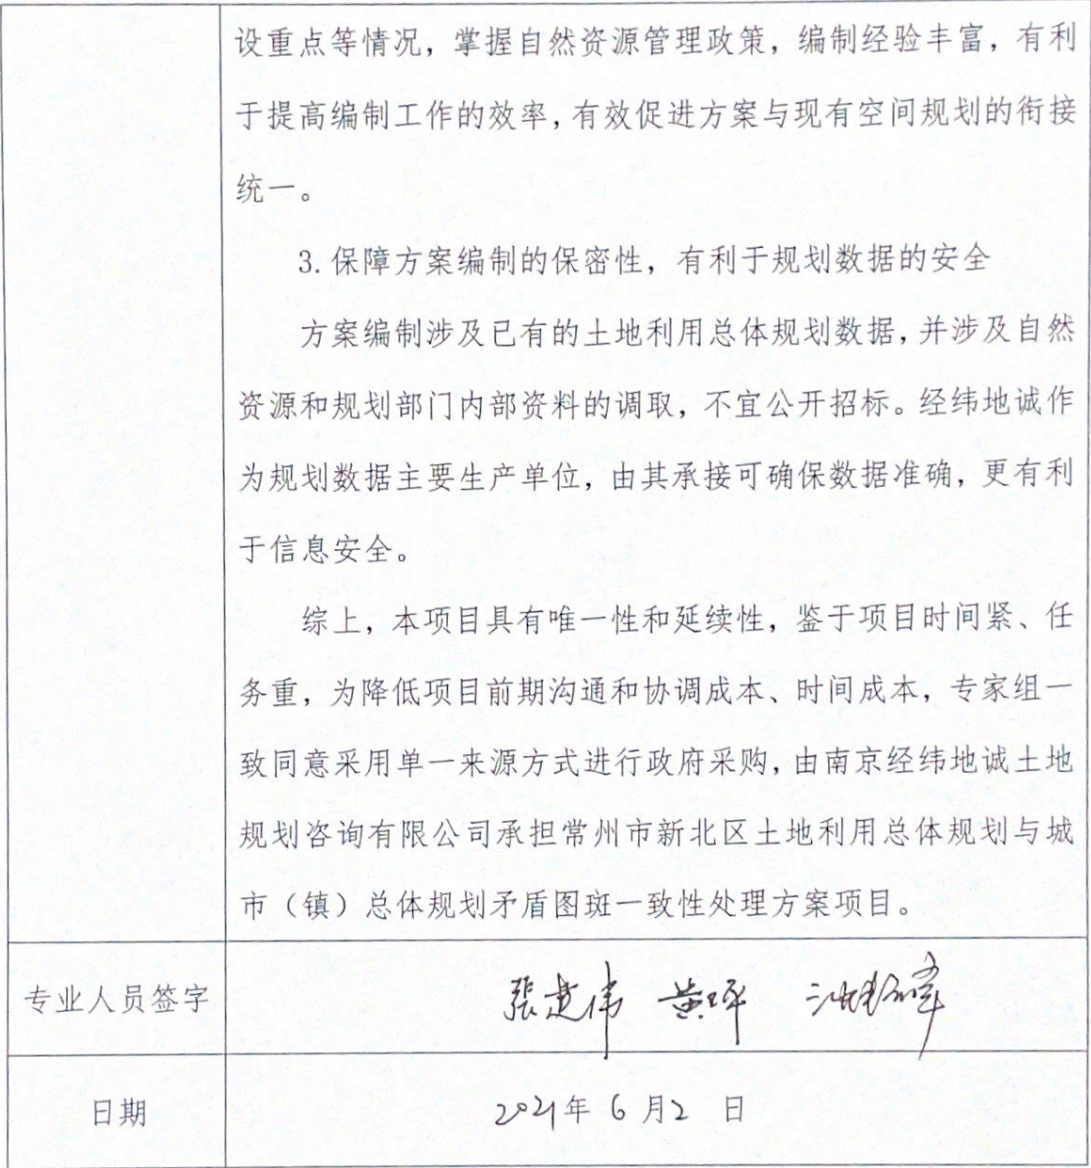 设重点等情况，掌握自然资源管理政策，编制经验丰富，有利
于提高编制工作的效率，有效促进方案与现有空间规划的衔接
统一。
3.保障方案编制的保密性，有利于规划数据的安全
方案编制涉及已有的土地利用总体规划数据，并涉及自然
资源和规划部门内部资料的调取，不宜公开招标。经纬地诚作
为规划数据主要生产单位，由其承接可确保数据准确，更有利
于信息安全。
综上，本项目具有唯一性和延续性，鉴于项目时间紧、任
务重，为降低项目前期沟通和协调成本、时间成本，专家组一
致同意采用单一来源方式进行政府采购，由南京经纬地诚土地
规划咨询有限公司承担常州市新北区土地利用总体规划与城
市（镇）总体规划矛盾图斑一致性处理方案项目。
专业人员签字 張建伟
日期 2021年 6 月2 日